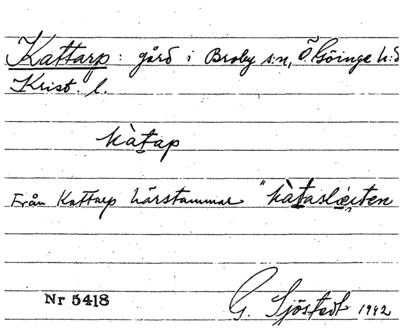 Kattarp: gård i Broby s:n, Ö. Göinge h:d
Krist. l.
kàtap
Från Kattarp härstammar "kàtaslęiten
Nr 5418
G. Sjöstedt 1942